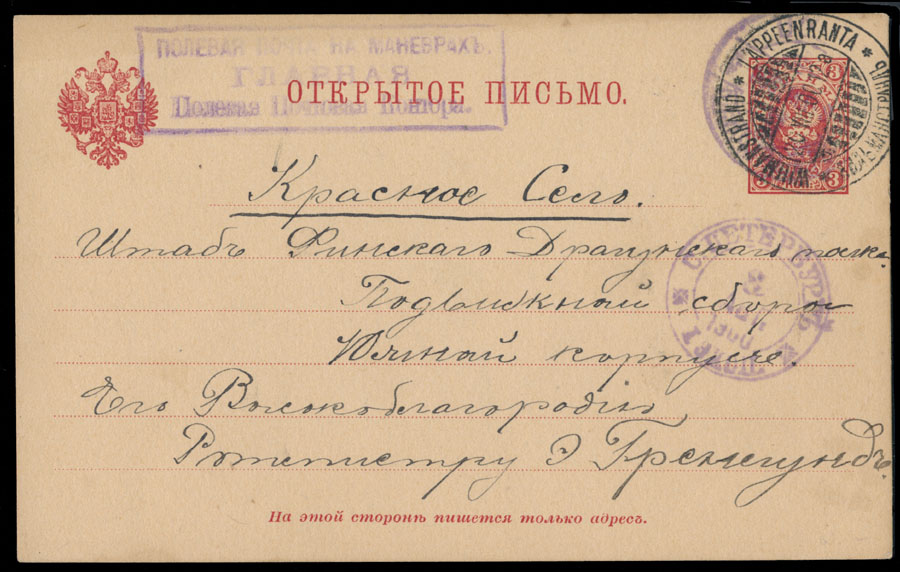 ПОЛЕВАЯ ПОЧТА НА МАНЕВРАХЪ.
ГЛАВНАЯ
Полевая Почтовая Контора.
ОТКРЫТОЕ ПИСЬМО.
LAPPEENRANTA * WILLMANSTRAND *
3 3
Красное Село.
Штабъ Финскаго Драгунскаго полка
Подвижной сборъ
Южный корпусъ.
Его Высокоблагородію
Ротмистру Э Гренлундъ.
С.ПЕТЕРБУРГЪ
На этой сторонѣ пишется только адресъ.